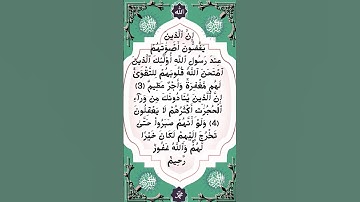 الله
إِنَّ ٱلَّذِينَ
يَغُضُّونَ أَصْوَٰتَهُمْ
عِندَ رَسُولِ ٱللَّهِ أُو۟لَٰٓئِكَ ٱلَّذِينَ
ٱمْتَحَنَ ٱللَّهُ قُلُوبَهُمْ لِلتَّقْوَىٰ
لَهُم مَّغْفِرَةٌ وَأَجْرٌ عَظِيمٌ (3)
إِنَّ ٱلَّذِينَ يُنَادُونَكَ مِن وَرَآءِ
ٱلْحُجُرَٰتِ أَكْثَرُهُمْ لَا يَعْقِلُونَ
(4) وَلَوْ أَنَّهُمْ صَبَرُوا۟ حَتَّىٰ
تَخْرُجَ إِلَيْهِمْ لَكَانَ خَيْرًا
لَّهُمْ وَٱللَّهُ غَفُورٌ
رَّحِيمٌ
محمد